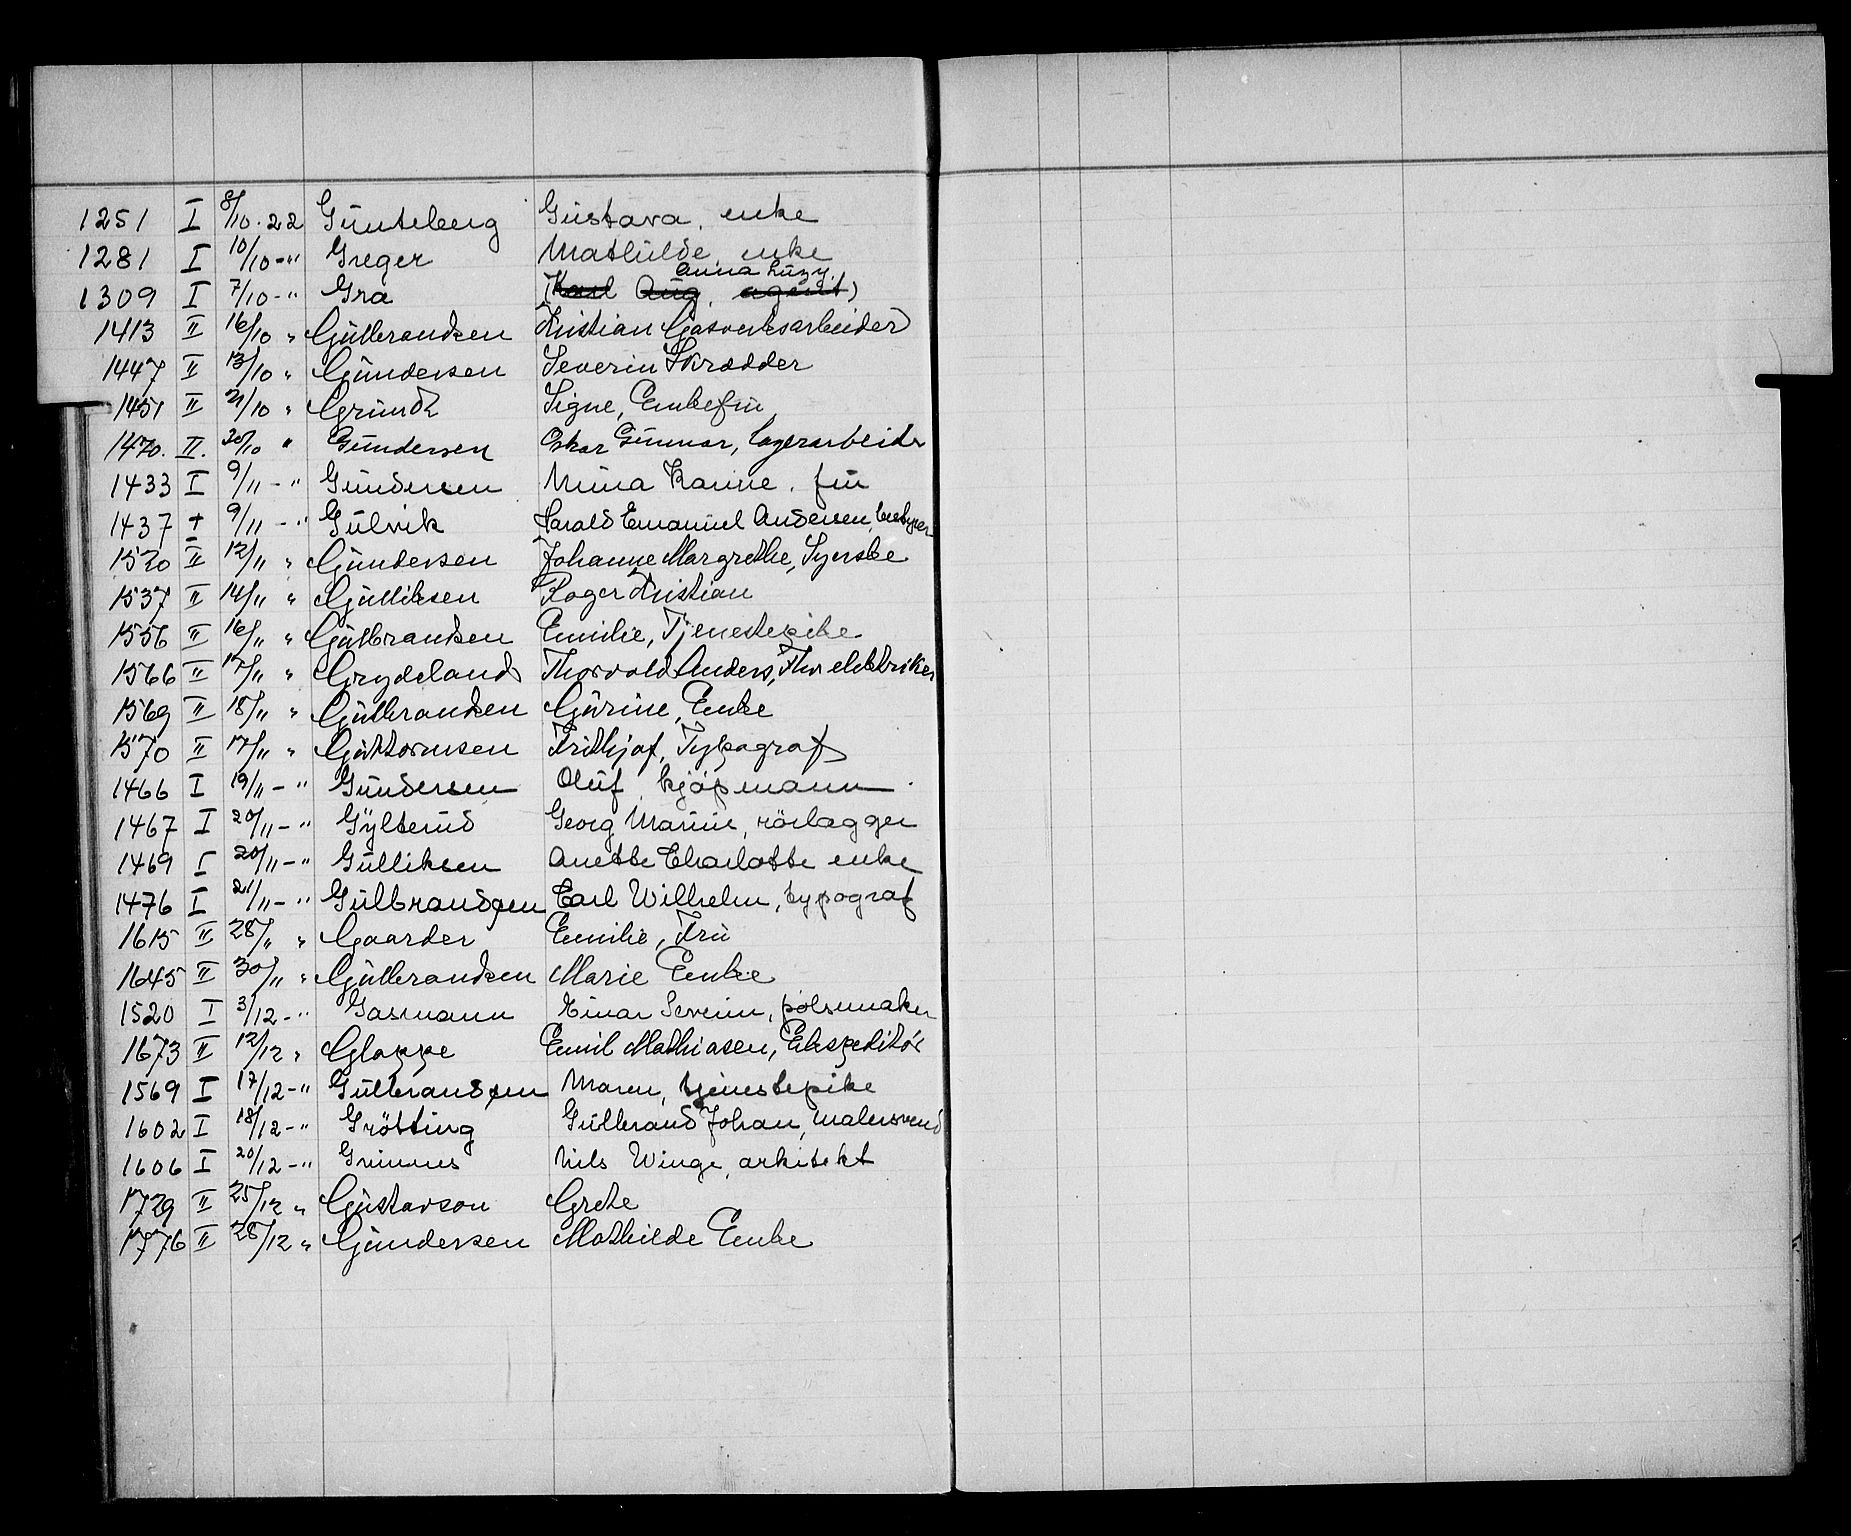 1251 I 8/10.22 Günteberg Gustava, enke
1281 I 10/10-" Greger Mathilde, enke
Anna Luzy.
1309 I 7/10-" Gra (Karl Aug, agent)
1413 II 16/10 " Gulbrandsen Kristian Gasverksarbeider
1447 II 13/10 " Gundersen Severin Skrædder
1451 II 21/10 " Grundt Signe, Enkefru
1470. II. 20/10 " Gundersen Oskar Gunnar, lagerarbeider
1433 I 9/11-" Gundersen Mina Karine, fru
1437 I 9/11-" Gulvik Harald Emanuel Andersen,
1520 II 12/11 " Gundersen Johanne Margrethe, Syerske
1537 II 14/11 " Gulliksen Roger Kristian
1556 II 16/11 " Gulbrandsen Emilie, Tjenestepike
1566 II 17/11 " Grydeland Thorvald Anders, Thv elektriker
1569 II 18/11 " Gulbrandsen Gurine, Enke
1570 II 17/11 " Guttormsen Frithjof, Typograf
1466 I 19/11-" Gundersen Oluf, kjøpmann
1467 I 20/11-" Gylterud Georg Marius, rörlægger
1469 I 20/11-" Gulliksen Anette Charlotte enke
1476 I 21/11-" Gulbrandsen Carl Wilhelm, typograf
1615 II 28/11 " Gaarder Emilie, Fru
1645 II 30/11 " Gulbrandsen Marie Enke
1520 I 3/12-" Gasmann Einar Severin, pølsmaker
1673 II 12/12 " Gloppe Emil Mathiasen, Ekspeditör
1569 I 17/12-" Gulbrandsen Maren, tjenestepike
1602 I 18/12-" Grötting Gulbrand Johan, malersvend
1606 I 20/12-" Grimnes Nils Winge, arkitekt
1729 II 25/12 " Gustavson Grete
1776 II 28/12 " Gundersen Mathilde Enke